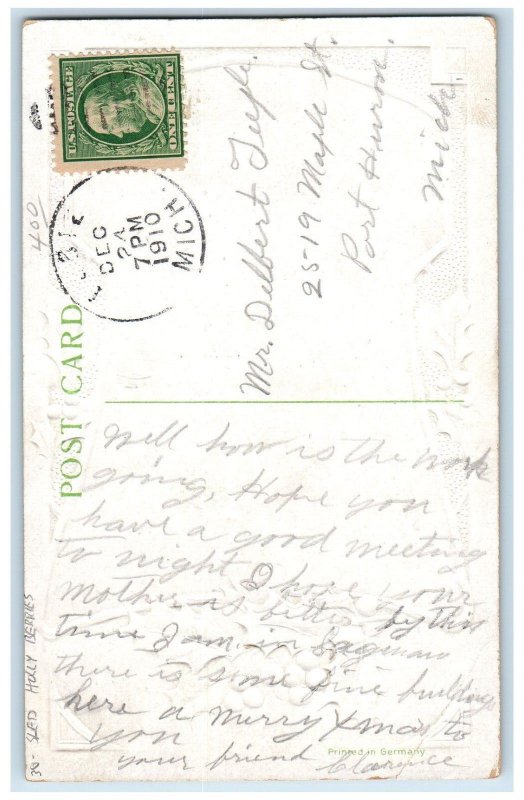 U.S. POSTAGE
ONE CENT
DEC
24
7 PM
1910
MICH.
400
POST CARD
Mr. Delbert
2519 Maple St.
Port Huron
Mich
Well how is the work
going, Hope you
have a good meeting
to night I hope your
mother is better by this
time I am in Saginaw
there is some fine buildings
here a merry Xmas to
you
your friend Clarence
Printed in Germany
30- SLED HOLLY BERRIES